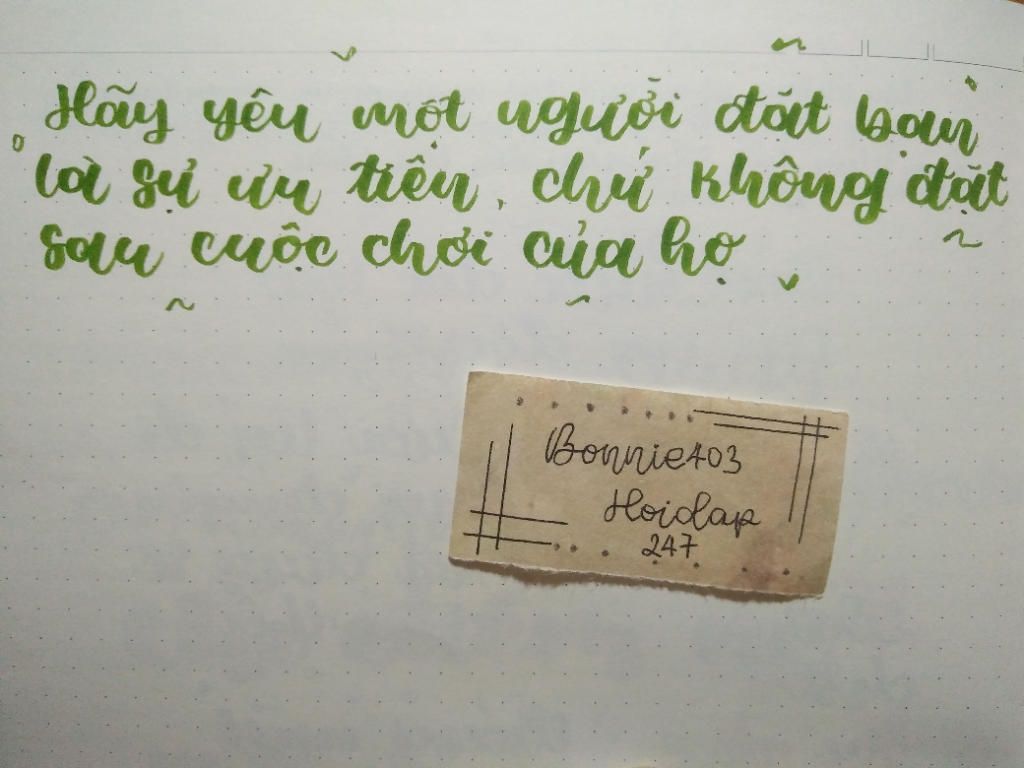 Hãy yêu một người đặt bạn
là sự ưu tiên, chứ không đặt
sau cuộc chơi của họ
Bonnie403
Hoidap
247